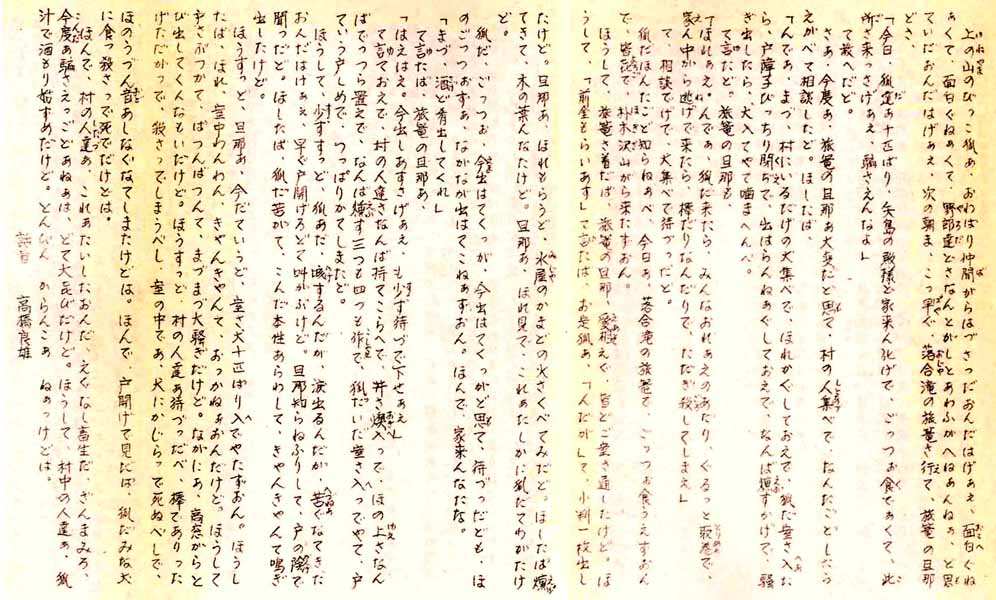 上の山のびっこ狐あ、おわばり仲間がらはづさっだおんだはげぁえ、面白ぐね
ぁくて、面白ぐねぁくて、野郎達どさなんとがしとあわふがへねあんねぁ、と思
ていだおんだはげぁえ、次の朝ま、こっ早ぐ、落合滝の旅篭さ行て、旅篭の旦那
どさ、
「今日、狐達ぁ十匹ばり、矢島の殿様と家来ん化げで、ごっつお食てぁくて、此
所ざ来っさげぁえ、騙さえんなよ」
て教へだど。
さあ、今度ぁ、旅篭の旦那ぁ大変だと思て、村の人集べで、なんたごどしたら
えがべて相談したけど。ほしたば、
「んであ、まづ、村にいるだけの犬集べで、ほれかぐしておえで、狐だ室さ入た
ら、戸障子びっちり閉ぢで、出はらんねぁぐしておえで、なんば燻すかげで、騒
ぎ出したら、犬入てやて噛まへんべ。
て言たど。旅篭の旦那も
「ほれぁええんであ、狐だ来たら、みんなおれぁえのあたり、ぐるっと取巻で、
家ん中がら逃げで来たら、棒だりなんだりで、ただぎ殺してしまえ」
て、相談でげで、犬集べで待づったけど。
狐だほんたこど知らねぁべ、今日ぁ、落合滝の旅篭で、ごっつお食うえすおん
で、皆して、朴木沢山がら来たずおん。
ほうして、旅篭さ着だば、旅篭の旦那、愛想えぐ、皆どご室さ通したけど。ほ
うして、「前金もらいあす」て言たば、お是狐ぁ、「んだが」て、小判一枚出し
たけど。旦那ぁ、ほれもらうど、水屋のかまどの火さくべてみだど。ほしたば燻
てきて、木の葉んなたけど。旦那ぁ、ほれ見で、これぁたしかに狐だてわがたけ
ど。
狐だ、ごっつお、今出はてくっが、今出はてくっがど思て、待づっだども、ほ
のごっつおぁ、ながなが出はてこねぁずおん。ほんで、家来んなたな。
「まづ、酒ど肴出してくれ」
て言たば、旅篭の旦那あ、
「はえはえ。今出しあすさげぁえ、も少す待づで下せぁえ」
て言ておえで、村の人達さなんば持てこらへで、丼さ燠入っで、ほの上さなん
ばでっつら置えで、なんば燻す三つも四つも作て、狐だいだ室さ入っでやて、戸
ていう戸しめで、つっぱりかてしまたど。
ほうして、少すすっど、狐あだ、咳するんだが、涙出るんだが、苦ぐなてきた
おんだはげぁえ、早ぐ戸開けろどて叫がぶけど。旦那知らねふりして、戸の陰で
聞っだど。ほしたば、狐だ苦がて、こんだ本性あらわして、きやんきやんて鳴ぎ
出したけど。
ほうすっど、旦那あ、今だていうど、室さ犬十匹ばり入でやたずおん。ほうし
たば、ほれ、室中わんわ、きゃんきゃんて、おっかねぁおんだけど。ほうして
戸さぶつかて、ばつんばつんて、まづまづ大騒ぎだけど。ながにぁ、高窓がらと
び出してくんなもいだけど。ほうすっど、村の人達ぁ待づっだべ、棒でありった
けただがっで、殺さっでしまうべし、室の中であ、犬にかじらっで死ぬべしで、
ほのうづん音あしなぐなてしまたけどは。ほんで、戸開げて見だば、狐だみな犬
に食っ殺さっで死でだけどは。
ほんで、村の人達ぁ、これぁたいしたおんだ、えぐなし畜生だ、ざんまみろ、
今度ぁ騙さえっごどぁねぁは、どて大喜びだけど。ほうして、村中の人達ぁ、狐
汁で酒もり始ずめだけど。どんぴん からんこぁ ねぁっけどは。
話者 高橋良雄